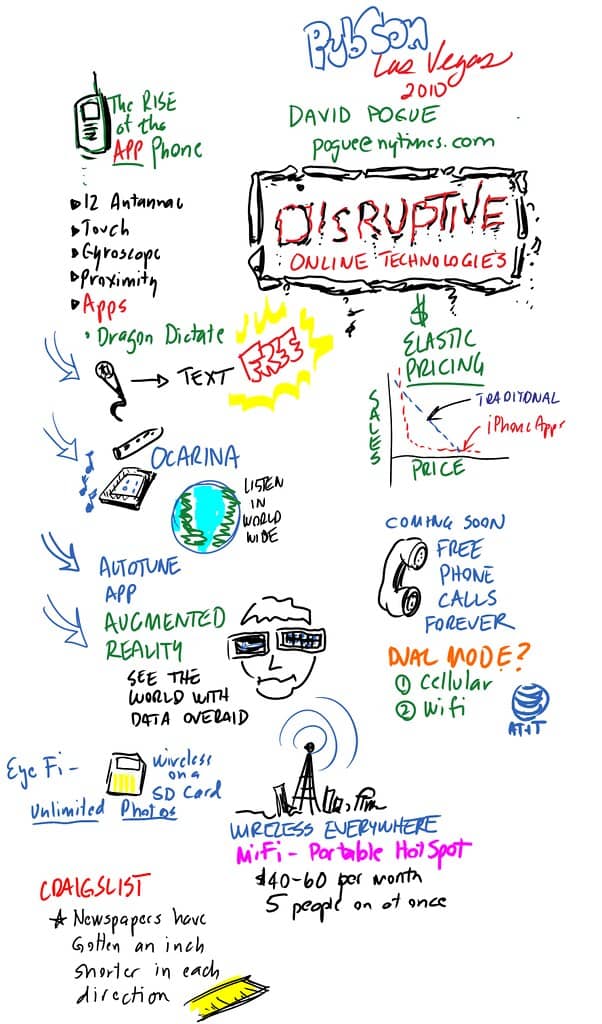 PubCon
Las Vegas
2010
DAVID POGUE
pogue@nytimes.com
DISRUPTIVE
ONLINE TECHNOLOGIES
The RISE
of the
APP Phone
12 Antannac
Touch
Gyroscope
Proximity
Apps
Dragon Dictate
→ TEXT
FREE
OCARINA
LISTEN
IN
WORLD
WIDE
AUTOTUNE
APP
AUGMENTED
REALITY
SEE THE
WORLD WITH
DATA OVERAID
$
ELASTIC
PRICING
SALES
TRADITONAL
iPhone Apps
PRICE
COMING SOON
FREE
PHONE
CALLS
FOREVER
DUAL MODE?
① Cellular
② Wifi
AT&T
Eye Fi -
Wireless
on a
SD Card
Unlimited Photos
WIRELESS EVERYWHERE
MiFi - Portable HotSpot
$40-60 per month
5 people on at once
CRAIGSLIST
★ Newspapers have
Gotten an inch
shorter in each
direction